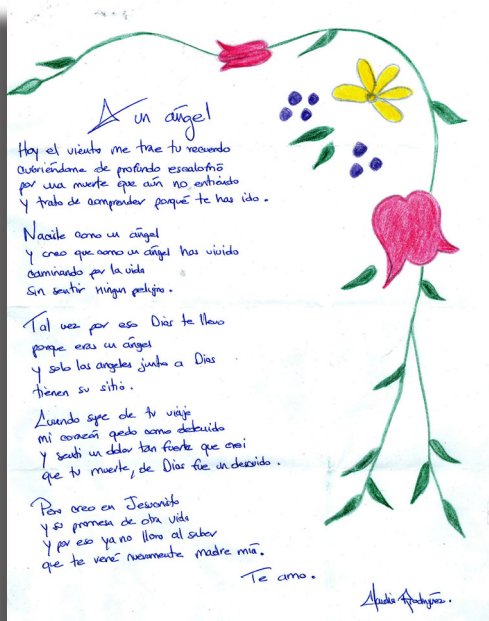 A un ángel
Hoy el viento me trae tu recuerdo
cubriéndome de profundo escalofrío
por una muerte que aún no entiendo
y trato de comprender porqué te has ido.
Naciste como un ángel
y creo que como un ángel has vivido
caminando por la vida
sin sentir ningun peligro.
Tal vez por eso Dios te llevo
porque eras un ángel
y solo los angeles junto a Dios
tienen su sitio.
Cuando supe de tu viaje
mi corazón quedo como detenido
y sentí un dolor tan fuerte que creí
que tu muerte, de Dios fue un descuido.
Pero creo en Jesucristo
y su promesa de otra vida
y por eso ya no lloro al saber
que te veré nuevamente madre mía.
Te amo.
Claudia Rodríguez.